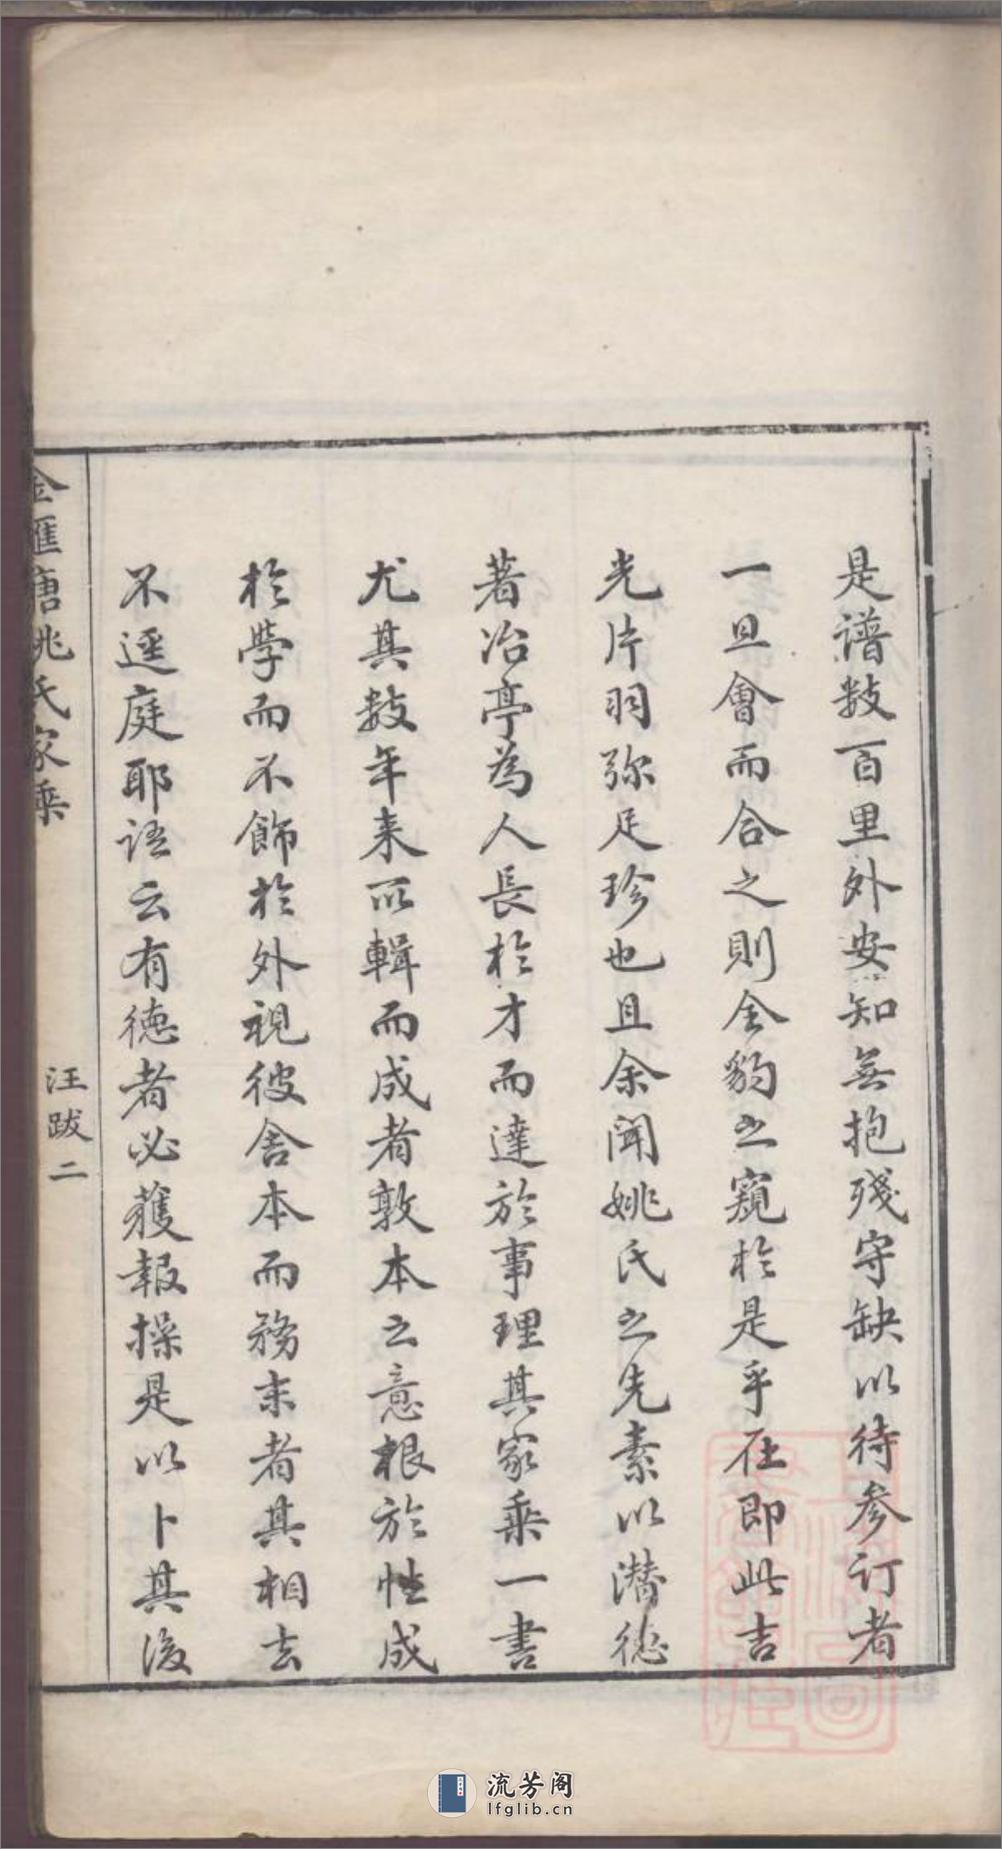 是譜数百里外安知無抱残守缺以待参订者
一旦會而合之則全豹之窺於是乎在即此吉
光片羽弥足珍也且余聞姚氏之先素以潜德
著冶亭為人長於才而達於事理其家乘一書
尤其数年来所輯而成者敦本之意根於性成
於學而不飾於外視彼舍本而務末者其相去
不逕庭耶语云有德者必獲報操是以卜其後
金匯唐姚氏家乘
汪跋二
流芳阁
lfglib.cn